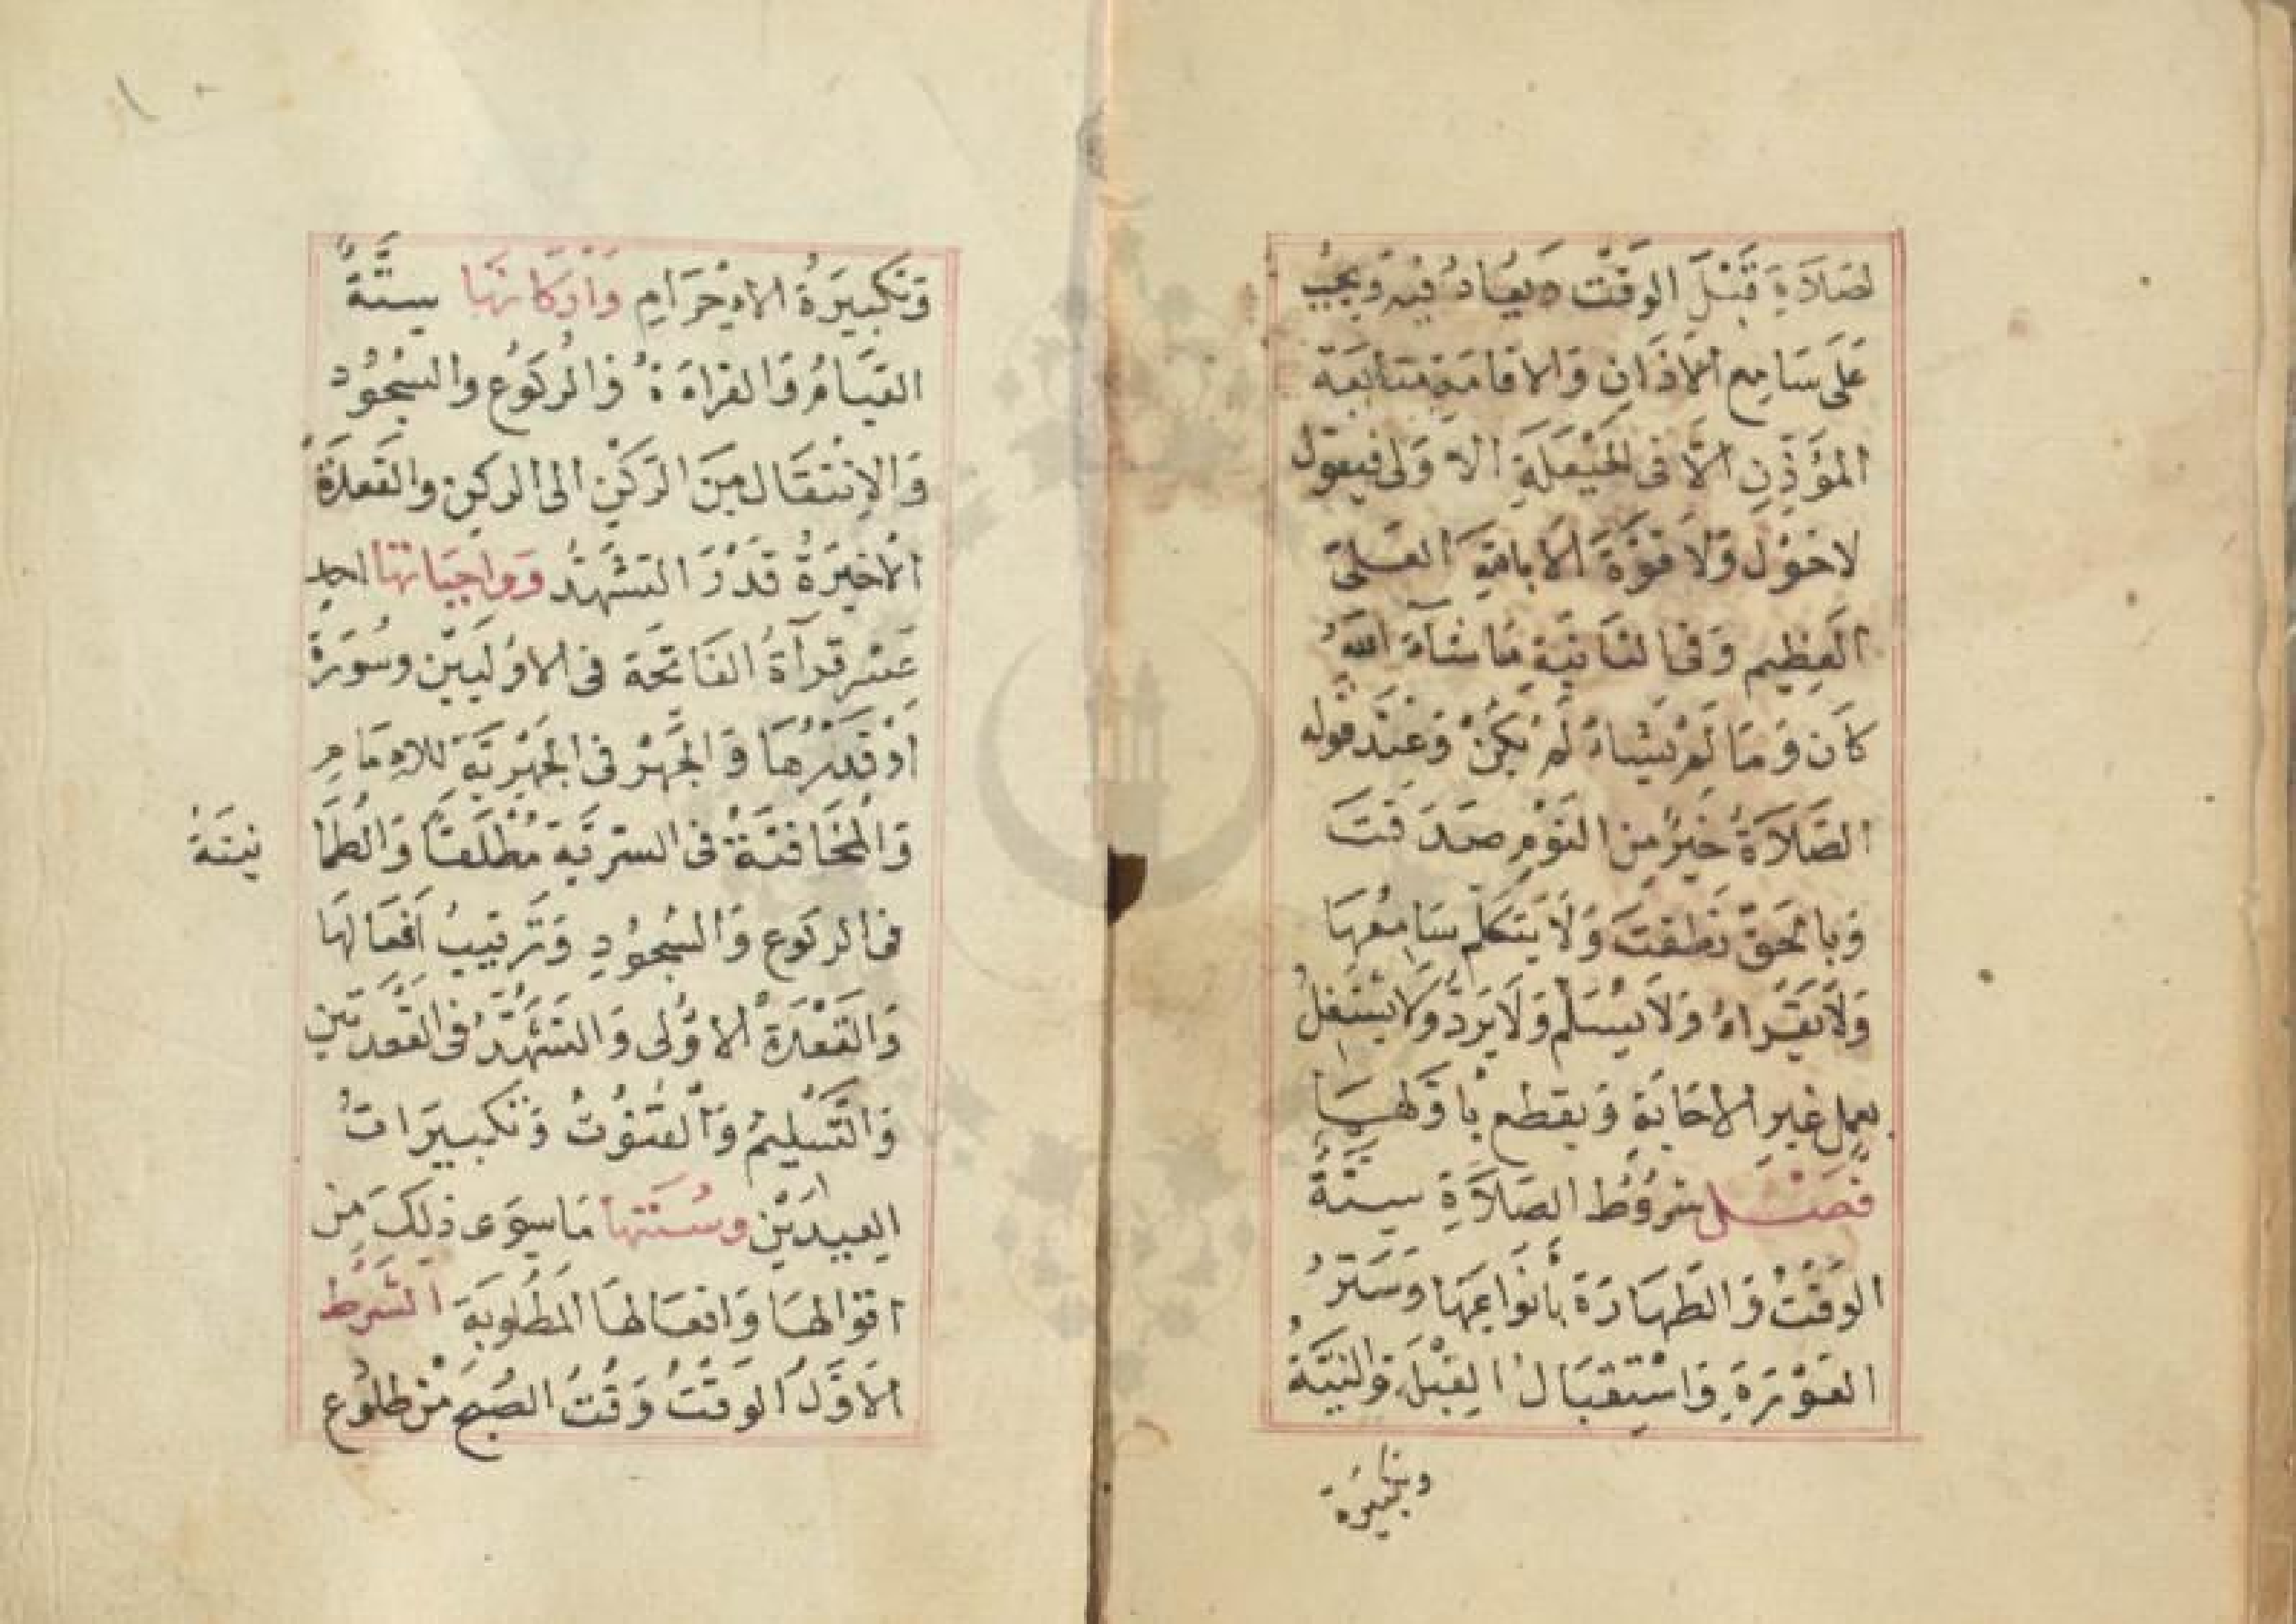 لصَلَاةِ قَبْلَ الوَقْت ويُعَادُ فيهِ وَيجبُ
عَلَى سَامِع الاَذَانِ وَالاقامَةِ مُتَابَعَة
المؤَذِّنِ الاَّ فى الحَيْعَلَةِ الاُوَلى فيقول
لاحَوْل وَلاَ قوَّةَ الاَّ باللهِ العَلىّ
العَظِيم وَفى الثانيَةِ مَا شآءَ اللهُ
كاَن وَمَا لَمْ يَشاءْ لَمْ يكُنْ وَعِنْدَ قوله
الصَلاَةُ خَيْرٌ مِن النَوْمِ صَدَقتَ
وَبالحَقّ نَطَقتَ وَلاَ يَتكلّم سَامِعُهَا
وَلاَ يَقْرَاءُ وَلاَ يُسَلّم وَلاَ يَرُدُّ وَلاَ يَشْتَغِلُ
بعمل غيرِ الاجَابَةِ وَيقطع بأَوَّلهَا
فَصْل شرُوُط الصَلاَةِ سِتَّةٌ
الوَقْتُ وَالطَهَارَةَ بأَنوَاعِهَا وَسَتْرُ
العَوْرَةِ وَاسْتِقبَالُ القِبْلَةِ وَالنيَّةُ
وتكبيرة
١٠
وَتكبيرَةُ الاحْرَامِ وَاَرْكانهَا سِتَّةٌ
القيَامُ وَالقراءَةُ وَالرُكوُع وَالسُجُوُد
وَالاِنْتقَال مِنَ الرُكْنِ الى الركنِ وَالقَعدَةُ
الاَخيرَةُ قَدْرَ التشَهّدِ وَوَاجبَاتهَا احد
عَشر قرآءَةُ الفَاتحَة فى الاوُليَيْن وَسُوَرةٌ
اوْ قَدْرُهَا وَالجَهْر فى الجَهْرِيّةِ للامَامِ
وَالمخَافتَةُ فى السرّيّةِ مُطْلَقاً وَالطُمَا
نينَةُ
فى الركوُع وَالسُجوُدِ وَتَرتيبُ اَفعَالهَا
وَالقَعْدَةُ الاوُلى وَالتَشَهُّدُ فى القَعْدَتَينِ
وَالتَسْليمُ وَالقنُوُتُ وَتكبيرَاتُ
العِيدَيْنِ وسُنَنهَا مَا سِوَى ذلِكَ مِن
اقوَالهَا وَافعَالهَا المَطلُوبَة الشَرط
الاَوَّلُ الوَقتُ وَقْتُ الصُبحِ مِنْ طلُوُع